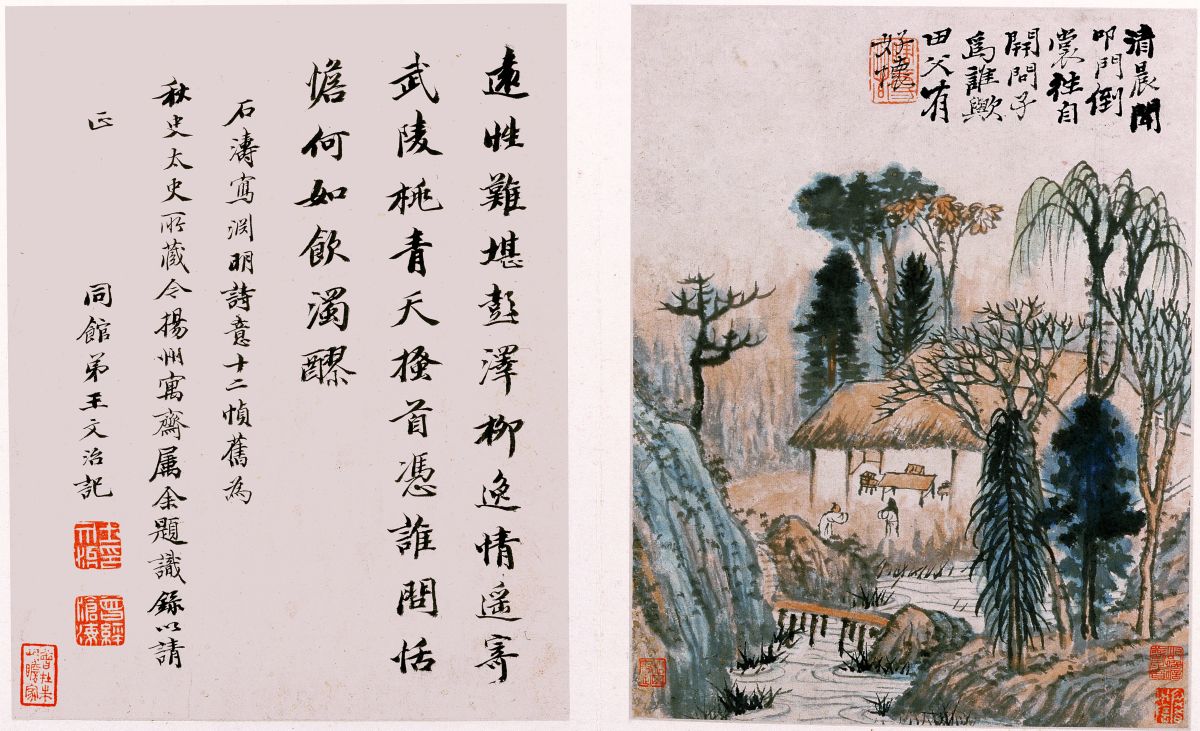 清晨聞
叩門倒
裳往自
開問子
爲誰歟
田父有
好懷
遠性難堪彭澤柳逸情遥寄
武陵桃青天搔首憑誰問恬
憺何如飲濁醪
石濤寫淵明詩意十二幀舊為
秋史太史所藏今揚州寓齋屬余題識錄以請
正
同館弟王文治記
曾經滄海
曾在朱屺瞻家